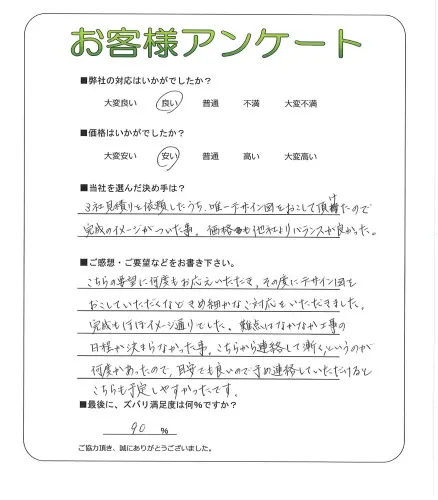 お客様アンケート
■弊社の対応はいかがでしたか？
大変良い 良い 普通 不満 大変不満
■価格はいかがでしたか？
大変安い 安い 普通 高い 大変高い
■当社を選んだ決め手は？
3社見積りを依頼したうち、唯一デザイン図をおこして頂けたので
完成のイメージがついた事。価格も他社よりバランスが良かった。
■ご感想・ご要望などをお書き下さい。
こちらの要望に何度もお応えいただき、その度にデザイン図を
おこしていただくなどきめ細かなご対応をいただきました。
完成もほぼイメージ通りでした。難点はなかなか工事の
日程が決まらなかった事。こちらから連絡して漸く、というのが
何度かあったので、目安でも良いので予め連絡していただけると
こちらも予定しやすかったです。
■最後に、ズバリ満足度は何%ですか？
90 %
ご協力頂き、誠にありがとうございました。